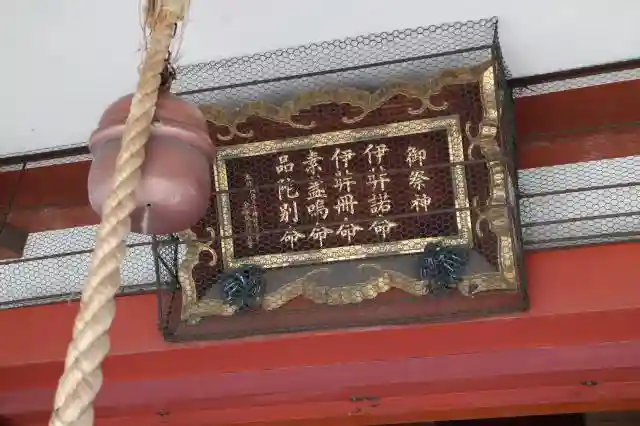 御祭神
伊弉諾命
伊弉冊命
素盞鳴命
品陀別命